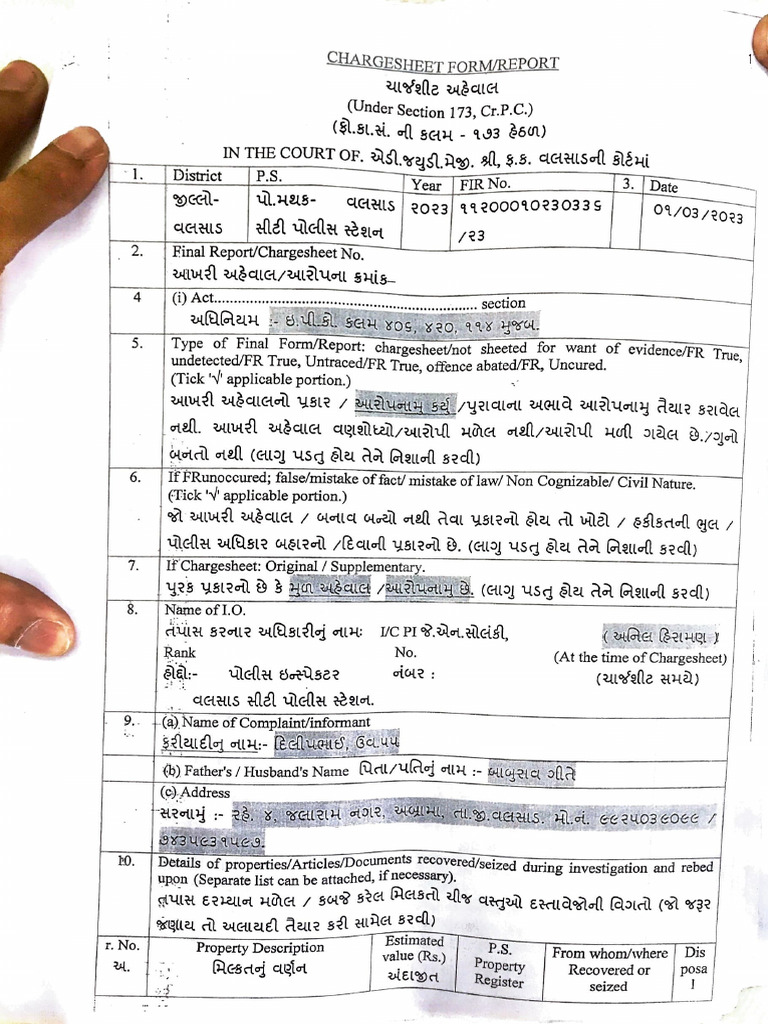 1
CHARGESHEET FORM/REPORT
ચાર્જશીટ અહેવાલ
(Under Section 173, Cr.P.C.)
(ક્રી.કા.સં. ની કલમ - ૧૭૩ હેઠળ)
IN THE COURT OF. એડી.જયુડી.મેજી. શ્રી, ફ.ક. વલસાડની કોર્ટમાં
1. District P.S. Year FIR No. 3. Date
જીલ્લો- પો.મથક- વલસાડ ૨૦૨૩ ૧૧૨૦૦૦૧૦૨૩૦૩૩૬ ૦૧/૦૩/૨૦૨૩
વલસાડ સીટી પોલીસ સ્ટેશન /૨૩
2. Final Report/Chargesheet No.
આખરી અહેવાલ/આરોપના ક્રમાંક–
4 (i) Act.................................................................. section
અધિનિયમ :- ઇ.પી.કો. કલમ ૪૦૬, ૪૨૦, ૧૧૪ મુજબ.
5. Type of Final Form/Report: chargesheet/not sheeted for want of evidence/FR True,
undetected/FR True, Untraced/FR True, offence abated/FR, Uncured.
(Tick '√' applicable portion.)
આખરી અહેવાલનો પ્રકાર / આરોપનામુ કર્યુ /પુરાવાના અભાવે આરોપનામુ તૈયાર કરાવેલ
નથી. આખરી અહેવાલ વણશોધ્યો/આરોપી મળેલ નથી/આરોપી મળી ગયેલ છે./ગુનો
બનતો નથી (લાગુ પડતુ હોય તેને નિશાની કરવી)
6. If FRunoccured; false/mistake of fact/ mistake of law/ Non Cognizable/ Civil Nature.
(Tick '√' applicable portion.)
જો આખરી અહેવાલ / બનાવ બન્યો નથી તેવા પ્રકારનો હોય તો ખોટો / હકીકતની ભુલ /
પોલીસ અધિકાર બહારનો /દિવાની પ્રકારનો છે. (લાગુ પડતુ હોય તેને નિશાની કરવી)
7. If Chargesheet: Original / Supplementary.
પુરક પ્રકારનો છે કે મુળ અહેવાલ /આરોપનામુ છે. (લાગુ પડતુ હોય તેને નિશાની કરવી)
8. Name of I.O.
તપાસ કરનાર અધિકારીનું નામઃ I/C PI જે.એન.સોલંકી, ( અનિલ હિરામણ )
Rank No. (At the time of Chargesheet)
હોદ્દોઃ- પોલીસ ઇન્સ્પેકટર નંબર : (ચાર્જશીટ સમયે)
વલસાડ સીટી પોલીસ સ્ટેશન.
9. (a) Name of Complaint/informant
ફરીયાદીનુ નામઃ- દિલીપભાઈ, ઉવ.૫૫
(b) Father's / Husband's Name પિતા/પતિનું નામ :- બાબુરાવ ગીતે
(c) Address
સરનામું :- રહે. ૪, જલારામ નગર, અબ્રામા, તા.જી.વલસાડ. મો.નં. ૯૯૨૫૦૩૯૦૯૯ /
૭૪૩૫૯૩૧૫૯૭.
10. Details of properties/Articles/Documents recovered/seized during investigation and rebed
upon (Separate list can be attached, if necessary).
તપાસ દરમ્યાન મળેલ / કબજે કરેલ મિલકતો ચીજ વસ્તુઓ દસ્તાવેજોની વિગતો (જો જરૂર
જણાય તો અલાયદી તૈયાર કરી સામેલ કરવી)
r. No. Property Description Estimated P.S. From whom/where Dis
અ. મિલ્કતનું વર્ણન value (Rs.) Property Recovered or posa
અંદાજીત Register seized l